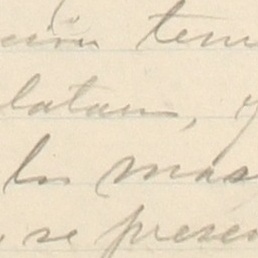 ción tem
latam, y
los mas
, se presen